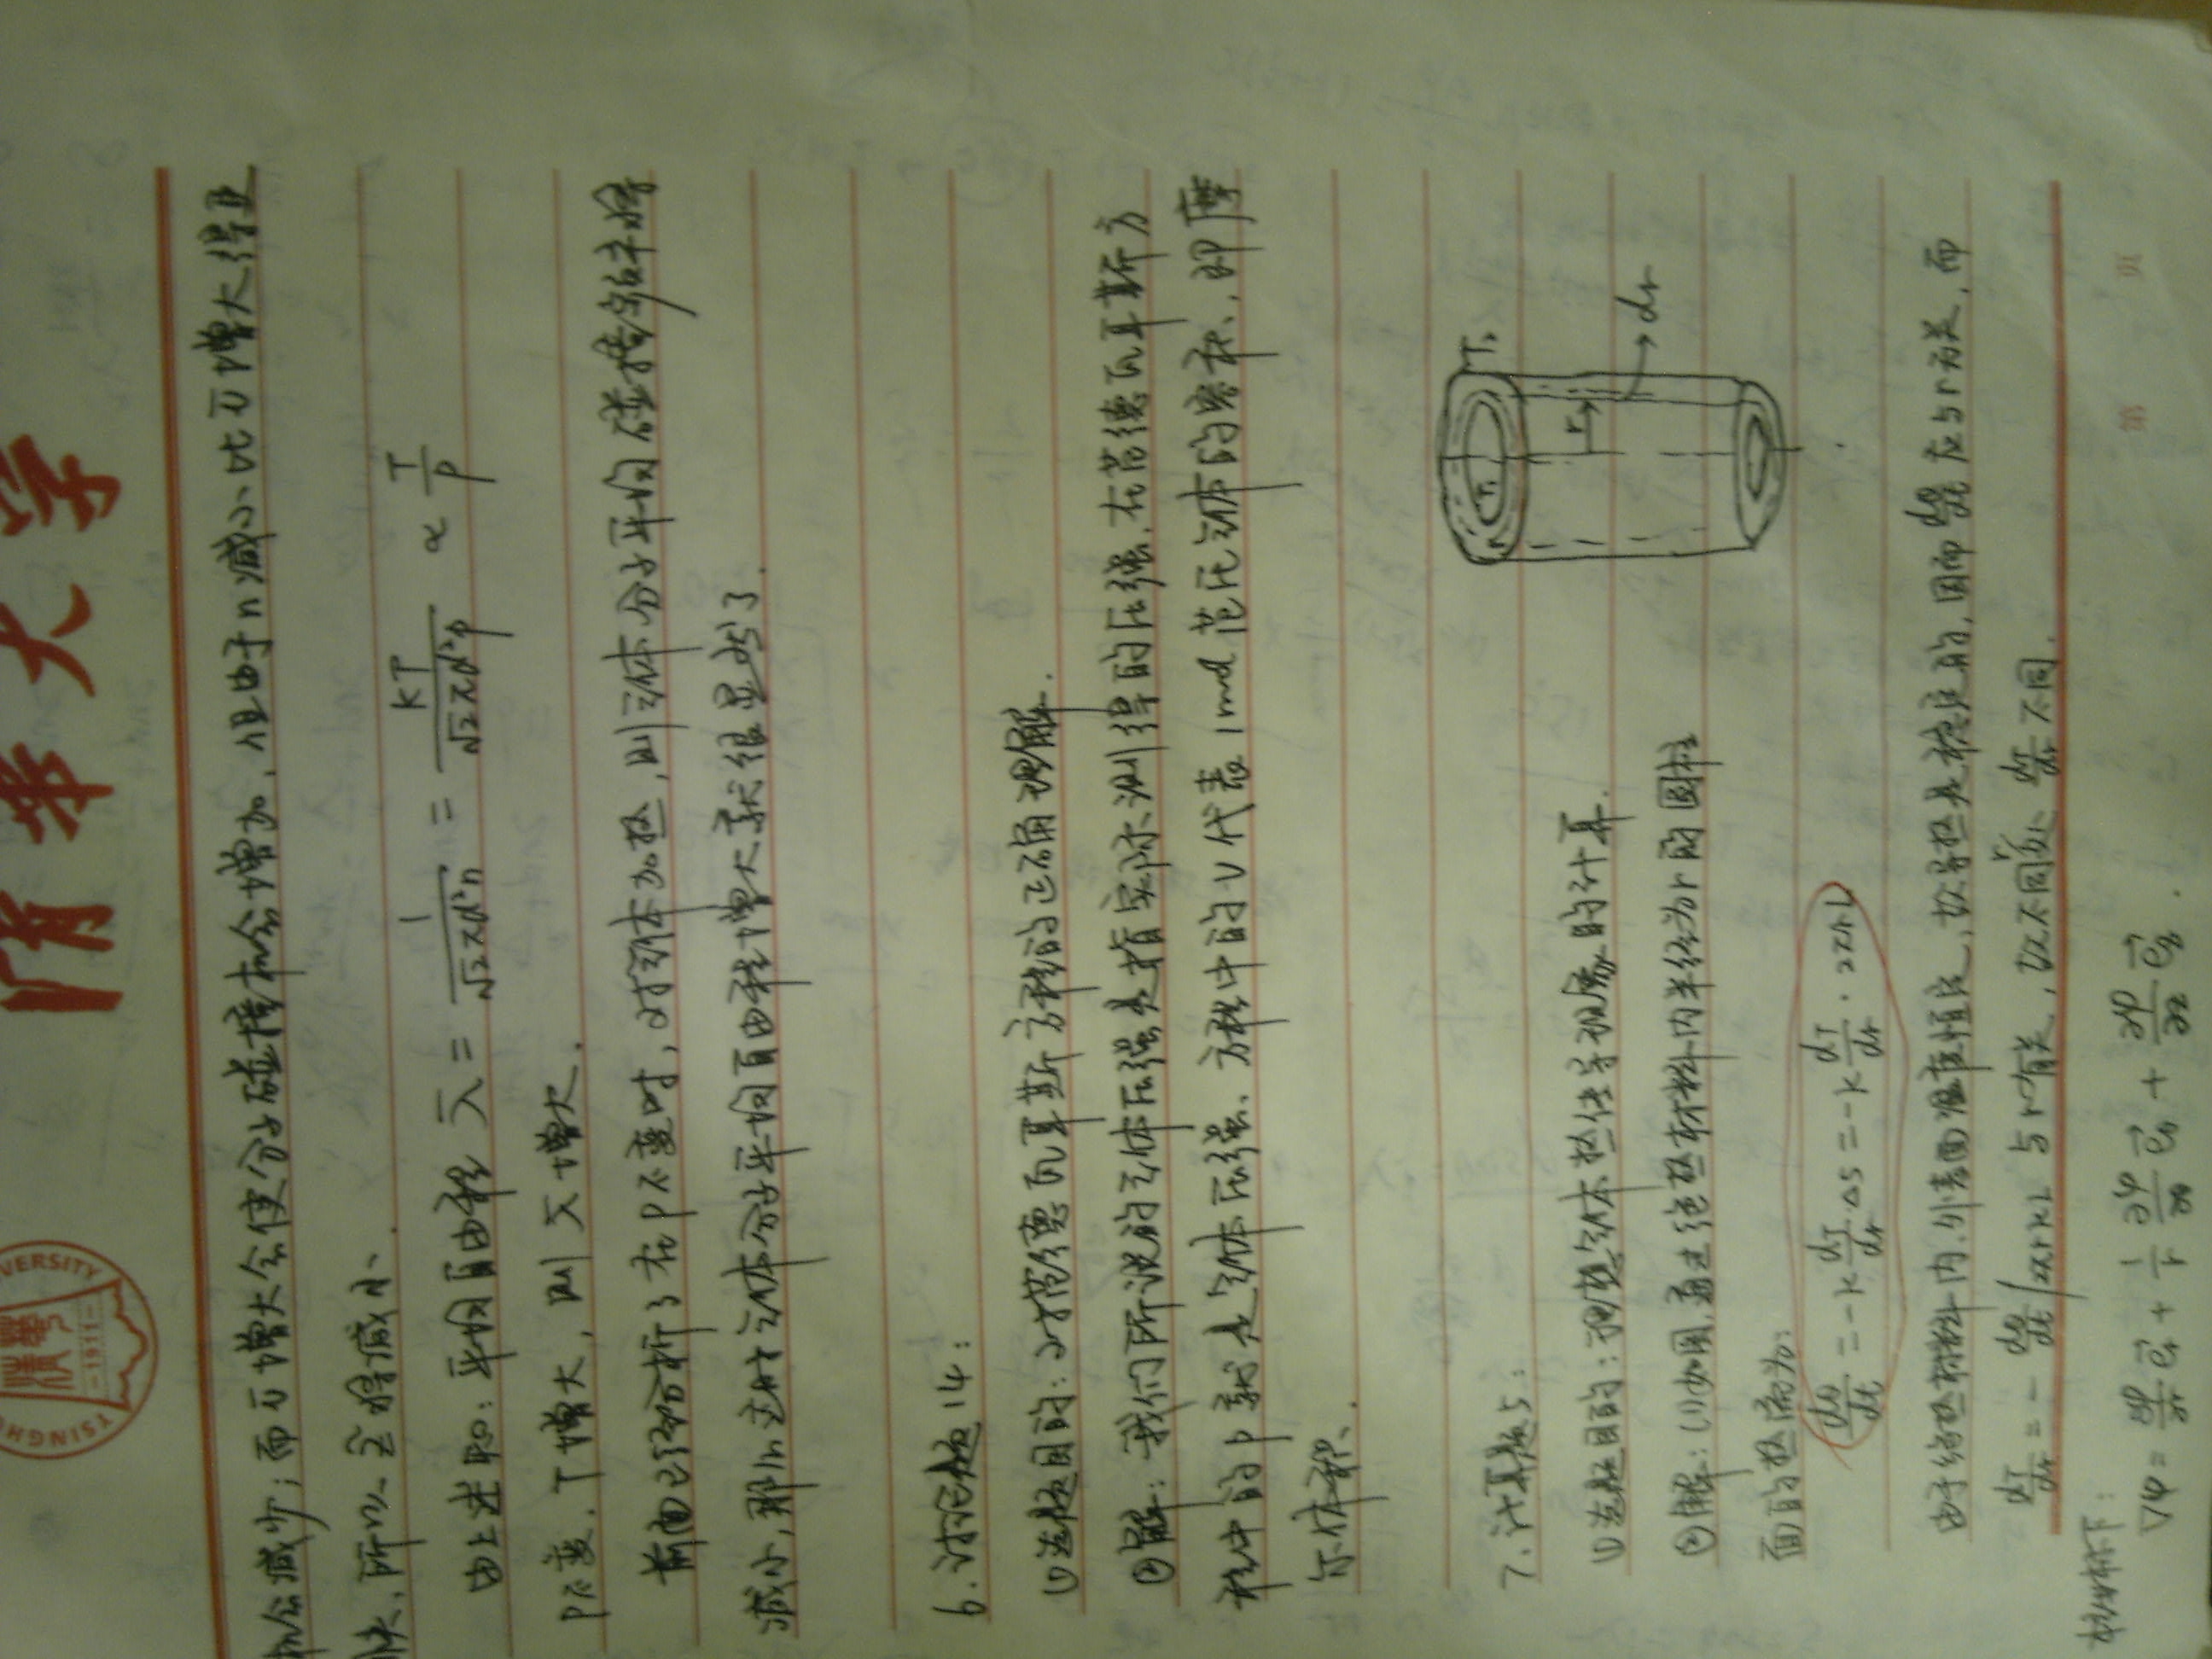 清华大学
TSINGHU
VERSITY
-1911-
机会减少；而v̄增大会使分子碰撞机会增加，但由于n减小比v̄增大得更
快，所以 z̄ 将减小．
由上述知：平均自由程 λ̄ = 1/(√2πd²n) = kT/(√2πd²p) ∝ T/P
P不变，T增大，则 λ̄ 增大．
前面已经分析了在P不变时，对气体加热，则气体分子平均碰撞频率将
减小，那么这时气体分子平均自由程增大就很显然了．
6．讨论题14：
① 选题目的：对范德瓦耳斯方程的正确理解．
② 解：我们所说的气体压强是指实际测得的压强，在范德瓦耳斯方
程中的p就是气体压强、方程中的V代表1mol范氏气体的容积，即摩
尔体积、
7．计算题5：
① 选题目的：理想气体热传导现象的计算．
② 解：(1)如图，通过绝热材料内半径为r的圆柱
面的热流为：
dQ/dt = -k dT/dr ΔS = -k dT/dr · 2πrL
r₁
r
r
T₂
dr
由于绝热材料内、外表面温度恒定，故导热是稳定的，因而 dQ/dt 应与r无关，而
dT/dr = - dQ/dt / 2πrkL 与r有关，故不同r处 dT/dr 不同．
第 页
柱坐标下：
∇φ = ∂φ/∂r e⃗r + 1/r ∂φ/∂θ e⃗θ + ∂φ/∂z e⃗z ．